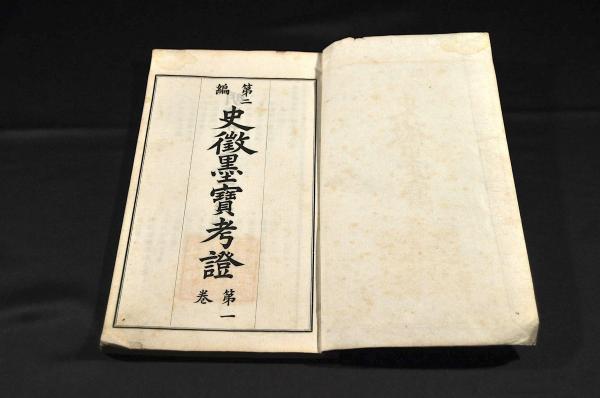 第二編
史徴墨寶考證
第一卷